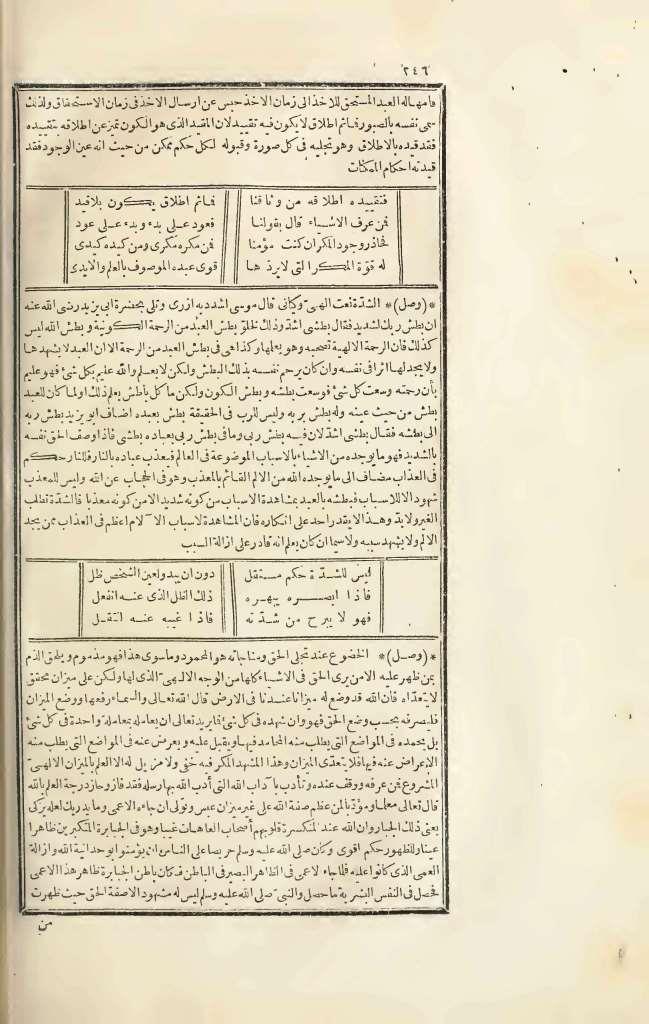 ٢٤٦
فامهاله العبد المستحق للاخذ الى زمان الاخذ حبس عن ارسال الاخذ فى زمان الاستحقاق ولذلك
سمى نفسه بالصبور فماثم اطلاق لا يكون فيه تقييد لان المقيد الذى هو الكون تميز عن اطلاقه بتقييده
فقد قيده بالاطلاق وهو تجليه فى كل صورة وقبوله لكل حكم ممكن من حيث انه عين الوجود فقد
قيدته احكام الممكنات
فتقييده اطلاقه من وثاقنا فماثم اطلاق يكون بلا قيد
فمن عرف الاشياء قال بقولنا فعود على بدء وبدء على عود
فحاذر وجود المكر ان كنت مؤمنا فمن مكره مكرى ومن كيده كيدى
له قوة المكر التى لا يردها قوى عبده الموصوف بالعلم والايدى
*(وصل)* الشدة نعت الهى وكيانى قال موسى اشدد به ازرى وتلى بحضرة ابى يزيد رضى الله عنه
ان بطش ربك لشديد فقال بطشى اشد وذلك لخلو بطش العبد من الرحمة الكونية وبطش الله ليس
كذلك فان الرحمة الالهية تصحبه وهو يعلمها وكذا هى فى بطش العبد من الرحمة الا ان العبد لا يشهدها
ولا يجد لها اثرا فى نفسه وان كان يرحم نفسه بذلك البطش ولكن لا يعلم والله عليم بكل شئ فهو عليم
بأن رحمته وسعت كل شئ فوسعت بطشه وبطش الكون ولكن ما كل باطش يعلم ذلك ولما كان للعبد
بطش من حيث عينه وله بطش بربه وليس للرب فى الحقيقة بطش بعبده اضاف ابو يزيد بطش ربه
الى بطشه فقال بطشى اشد لان فيه بطش ربى وما فى بطش ربى بعباده بطشى فاذا وصف الحق نفسه
بالشديد فهو ما يوجده من الاشياء بالاسباب الموضوعة فى العالم فيعذب عباده بالنار فللنار حكم
فى العذاب مضاف الى ما يوجده الله من الالم القائم بالمعذب وهو فى الحجاب عن الله وليس للمعذب
شهود الا للاسباب فبطشه بالعبد بمشاهدة الاسباب من كونه شديدا لا من كونه معذبا فالشدة تطلب
الغير ولا بد وهذا لا يقدر احد على انكاره فان المشاهدة لاسباب الآلام اعظم فى العذاب ممن يجد
الالم ولا يشهد سببه ولا سيما ان كان يعلم انه قادر على ازالة السبب
ليس للشدة حكم مستقل دون ان يبدو لعين الشخص ظل
فاذا ابصره يبهره ذلك الظل الذى عنه انفعل
فهو لا يبرح من شدته فاذا غيبه عنه انتقل
*(وصل)* الخضوع عند تجلى الحق ومناجاته هو المحمود وما سوى هذا فهو مذموم ويلحق الذم
بمن ظهر عليه الا من يرى الحق فى الاشياء كلها من الوجه الالهى الذى لها ولكن على ميزان محقق
لا يتعداه فان الله قد وضع له ميزانا عندنا فى الارض قال الله تعالى والسماء رفعها ووضع الميزان
فليصرفه بحسب وضع الحق فهو وان شهده فى كل شئ فما يريد تعالى ان يعامله بمعاملة واحدة فى كل شئ
بل يحمده فى المواضع التى يطلب منه المحامد فيها ويقبل عليه ويعرض عنه فى المواضع التى يطلب منه
الاعراض عنه فيها فلا يتعدى الميزان وهذا المشهد المكر فيه خفى ولا مزيل له الا العلم بالميزان الالهى
المشروع فمن عرفه ووقف عنده وتأدب بآداب الله التى أدب الله بها رسله فقد فاز وحاز درجة العلم بالله
قال تعالى معلما ومؤدبا لمن عظم صفة الله على غير ميزان عبس وتولى ان جاءه الاعمى وما يدريك لعله يزكى
يعنى ذلك الجبار وان الله عند المنكسرة قلوبهم أصحاب العاهات غيبا وهو فى الجبابرة المتكبرين ظاهرا
عينا وللظهور حكم اقوى وكان صلى الله عليه وسلم حريصا على الناس ان يؤمنوا بوحدانية الله وازالة
العمى الذى كانوا عليه فلما جاء الاعمى فى الظاهر البصير فى الباطن فكان باطن الجبابرة ظاهر هذا الاعمى
فحصل فى النفس البشرية ما حصل والنبى صلى الله عليه وسلم ليس له مشهود الا صفة الحق حيث ظهرت
من